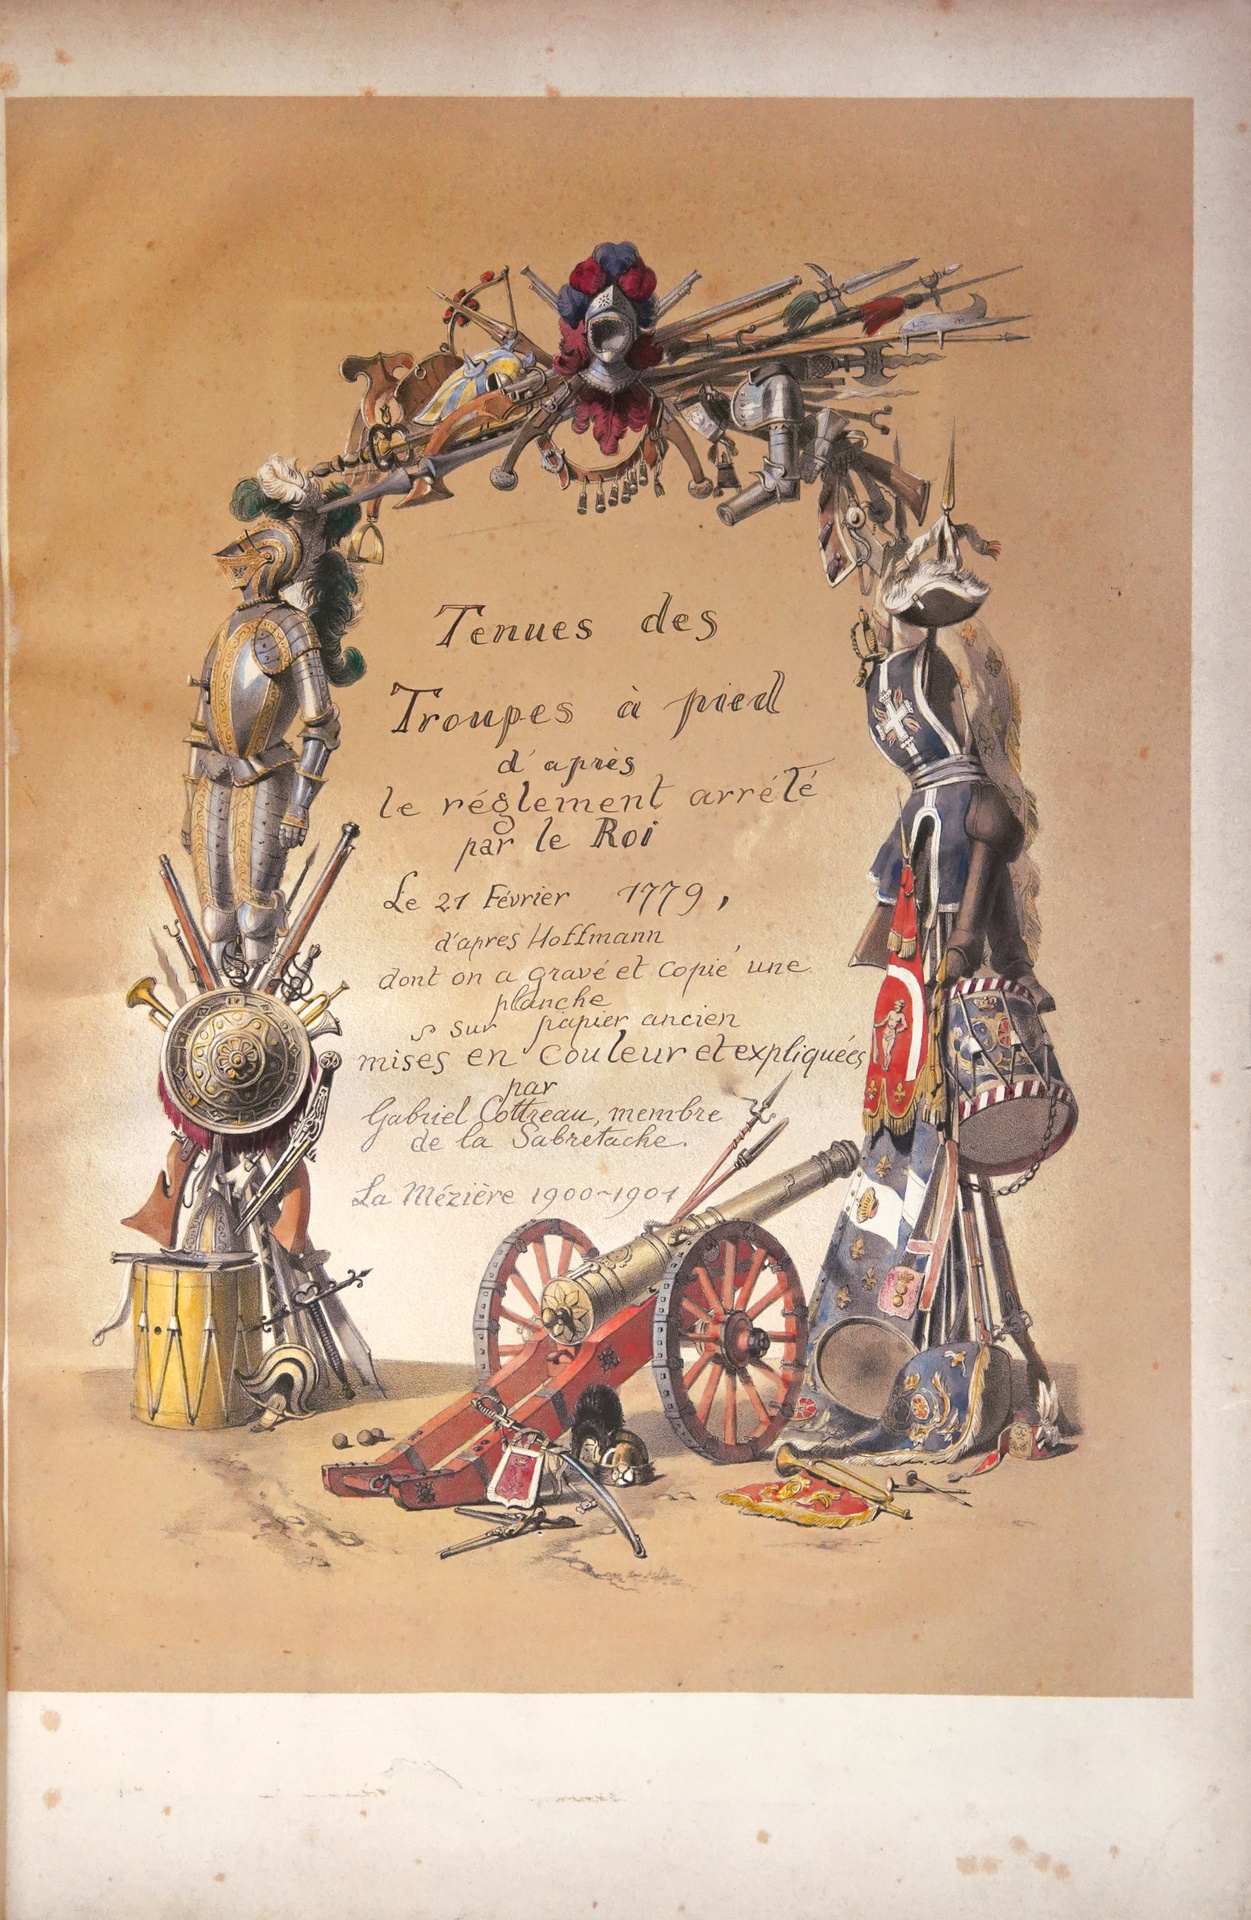 Tenues des
Troupes à pied
d'après
le réglement arrété
par le Roi
Le 21 Février 1779,
d'apres Hoffmann
dont on a gravé et copié une
planche
sur papier ancien
mises en couleur et expliquées
par
Gabriel Cottreau, membre
de la Sabretache.
La Mézière 1900-1901